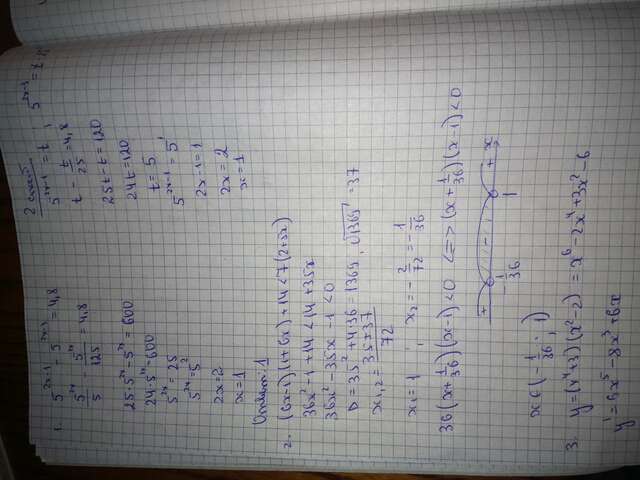 1. 5^(2x-1) - 5^(2x-3) = 4,8
5^(2x)/5 - 5^(2x)/125 = 4,8
25·5^(2x) - 5^(2x) = 600
24·5^(2x) = 600
5^(2x) = 25
5^(2x) = 5^2
2x = 2
x = 1
Ответ: 1
2 способ
5^(2x-1) = t, 5^(2x-3) =
t - t/25 = 4,8
25t - t = 120
24t = 120
t = 5
5^(2x-1) = 5^1
2x - 1 = 1
2x = 2
x = 1
2. (6x-1)(1+6x) + 14 < 7(2+5x)
36x^2 - 1 + 14 < 14 + 35x
36x^2 - 35x - 1 < 0
D = 35^2 + 4·36 = 1369, √1369 = 37
x1,2 = (35±37)/72
x1 = 1, x2 = -2/72 = -1/36
36(x + 1/36)(x-1) < 0 <=> (x + 1/36)(x-1) < 0
+ - + x
-1/36 1
x ∈ (-1/36; 1)
3. y = (x^4+3)(x^2-2) = x^6 - 2x^4 + 3x^2 - 6
y' = 6x^5 - 8x^3 + 6x